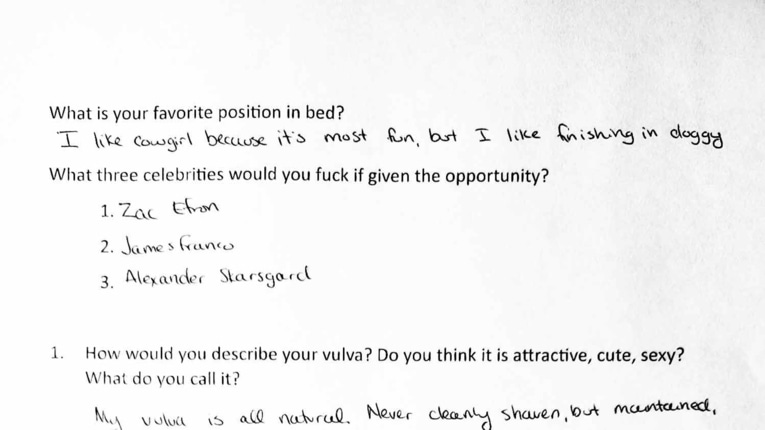 What is your favorite position in bed?
I like cowgirl because it's most fun, but I like finishing in doggy
What three celebrities would you fuck if given the opportunity?
1. Zac Efron
2. James Franco
3. Alexander Starsgard
1. How would you describe your vulva? Do you think it is attractive, cute, sexy?
What do you call it?
My vulva is all natural. Never cleanly shaven, but maintained,